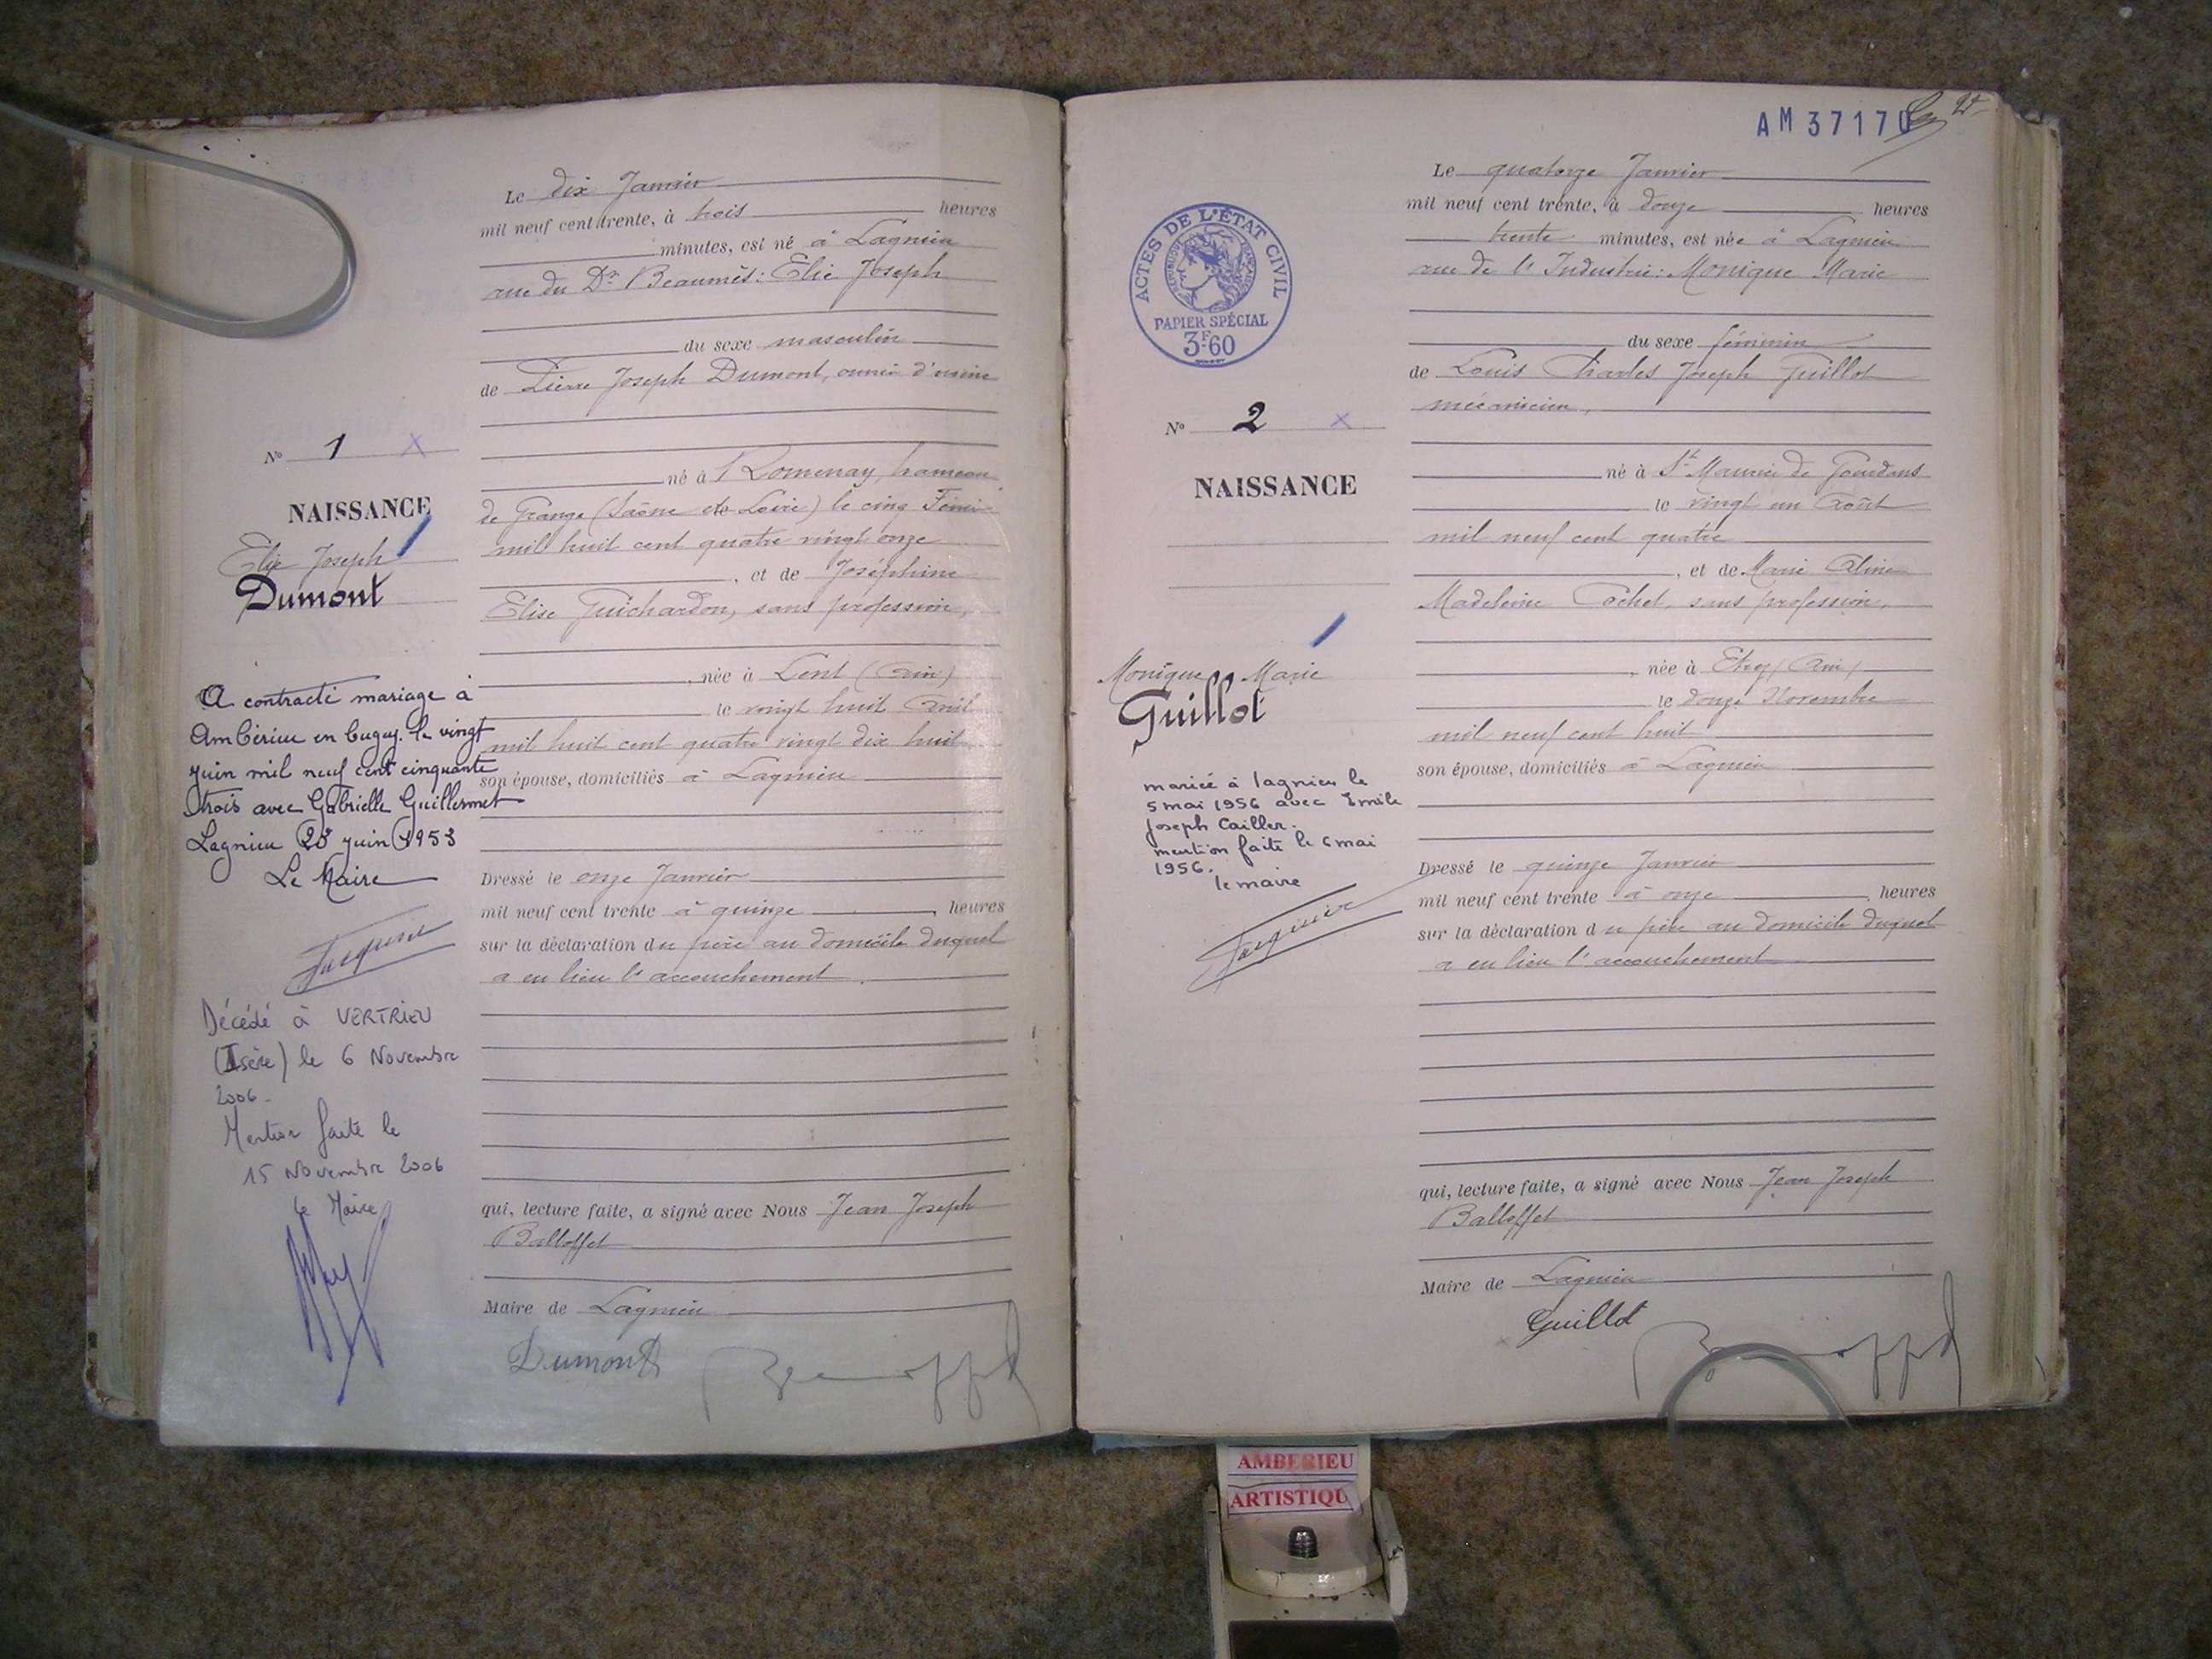 Le dix Janvier
mil neuf cent trente, à trois heures
minutes, est né à Lagnieu
rue du Dr Beaumès: Elie Joseph
du sexe masculin
de Pierre Joseph Dumont, ouvrier d'usine
né à Romenay, hameau
de Grange (Saône et Loire) le cinq Février
mil huit cent quatre vingt onze
, et de Joséphine
Elise Guichardon, sans profession,
, née à Lent (Ain)
le vingt huit Avril
mil huit cent quatre vingt dix huit
son épouse, domiciliés à Lagnieu
Dressé le onze Janvier
mil neuf cent trente à quinze heures
sur la déclaration du père au domicile duquel
a eu lieu l'accouchement.
qui, lecture faite, a signé avec Nous Jean Joseph
Balloffet
Maire de Lagnieu
Dumont
No 1 X
NAISSANCE
Elie Joseph
Dumont
A contracté mariage à
Ambérieu en Bugey le vingt
juin mil neuf cent cinquante
trois avec Gabrielle Guillermet
Lagnieu 23 juin 1953
Le Maire
Décédé à VERTRIEU
(Isère) le 6 Novembre
2006.
Mention faite le
15 Novembre 2006
Le Maire
AM 37170
ACTES DE L'ÉTAT CIVIL
RÉPUBLIQUE FRANÇAISE
PAPIER SPÉCIAL
3F60
No 2 X
NAISSANCE
Monique Marie
Guillot
mariée à lagnieu le
5 mai 1956 avec Emile
Joseph Cailler.
mention faite le 6 mai
1956.
le maire
Le quatorze Janvier
mil neuf cent trente, à douze heures
trente minutes, est née à Lagnieu
rue de l'Industrie: Monique Marie
du sexe féminin
de Louis Charles Joseph Guillot
mécanicien,
né à St Maurice de Gourdans
le vingt un Août
mil neuf cent quatre
, et de Marie Aline
Madeleine Cochet, sans profession,
, née à Etrez (Ain)
le douze Novembre
mil neuf cent huit
son épouse, domiciliés à Lagnieu
Dressé le quinze Janvier
mil neuf cent trente à onze heures
sur la déclaration du père au domicile duquel
a eu lieu l'accouchement
qui, lecture faite, a signé avec Nous Jean Joseph
Balloffet
Maire de Lagnieu
Guillot
AMBERIEU
ARTISTIQU